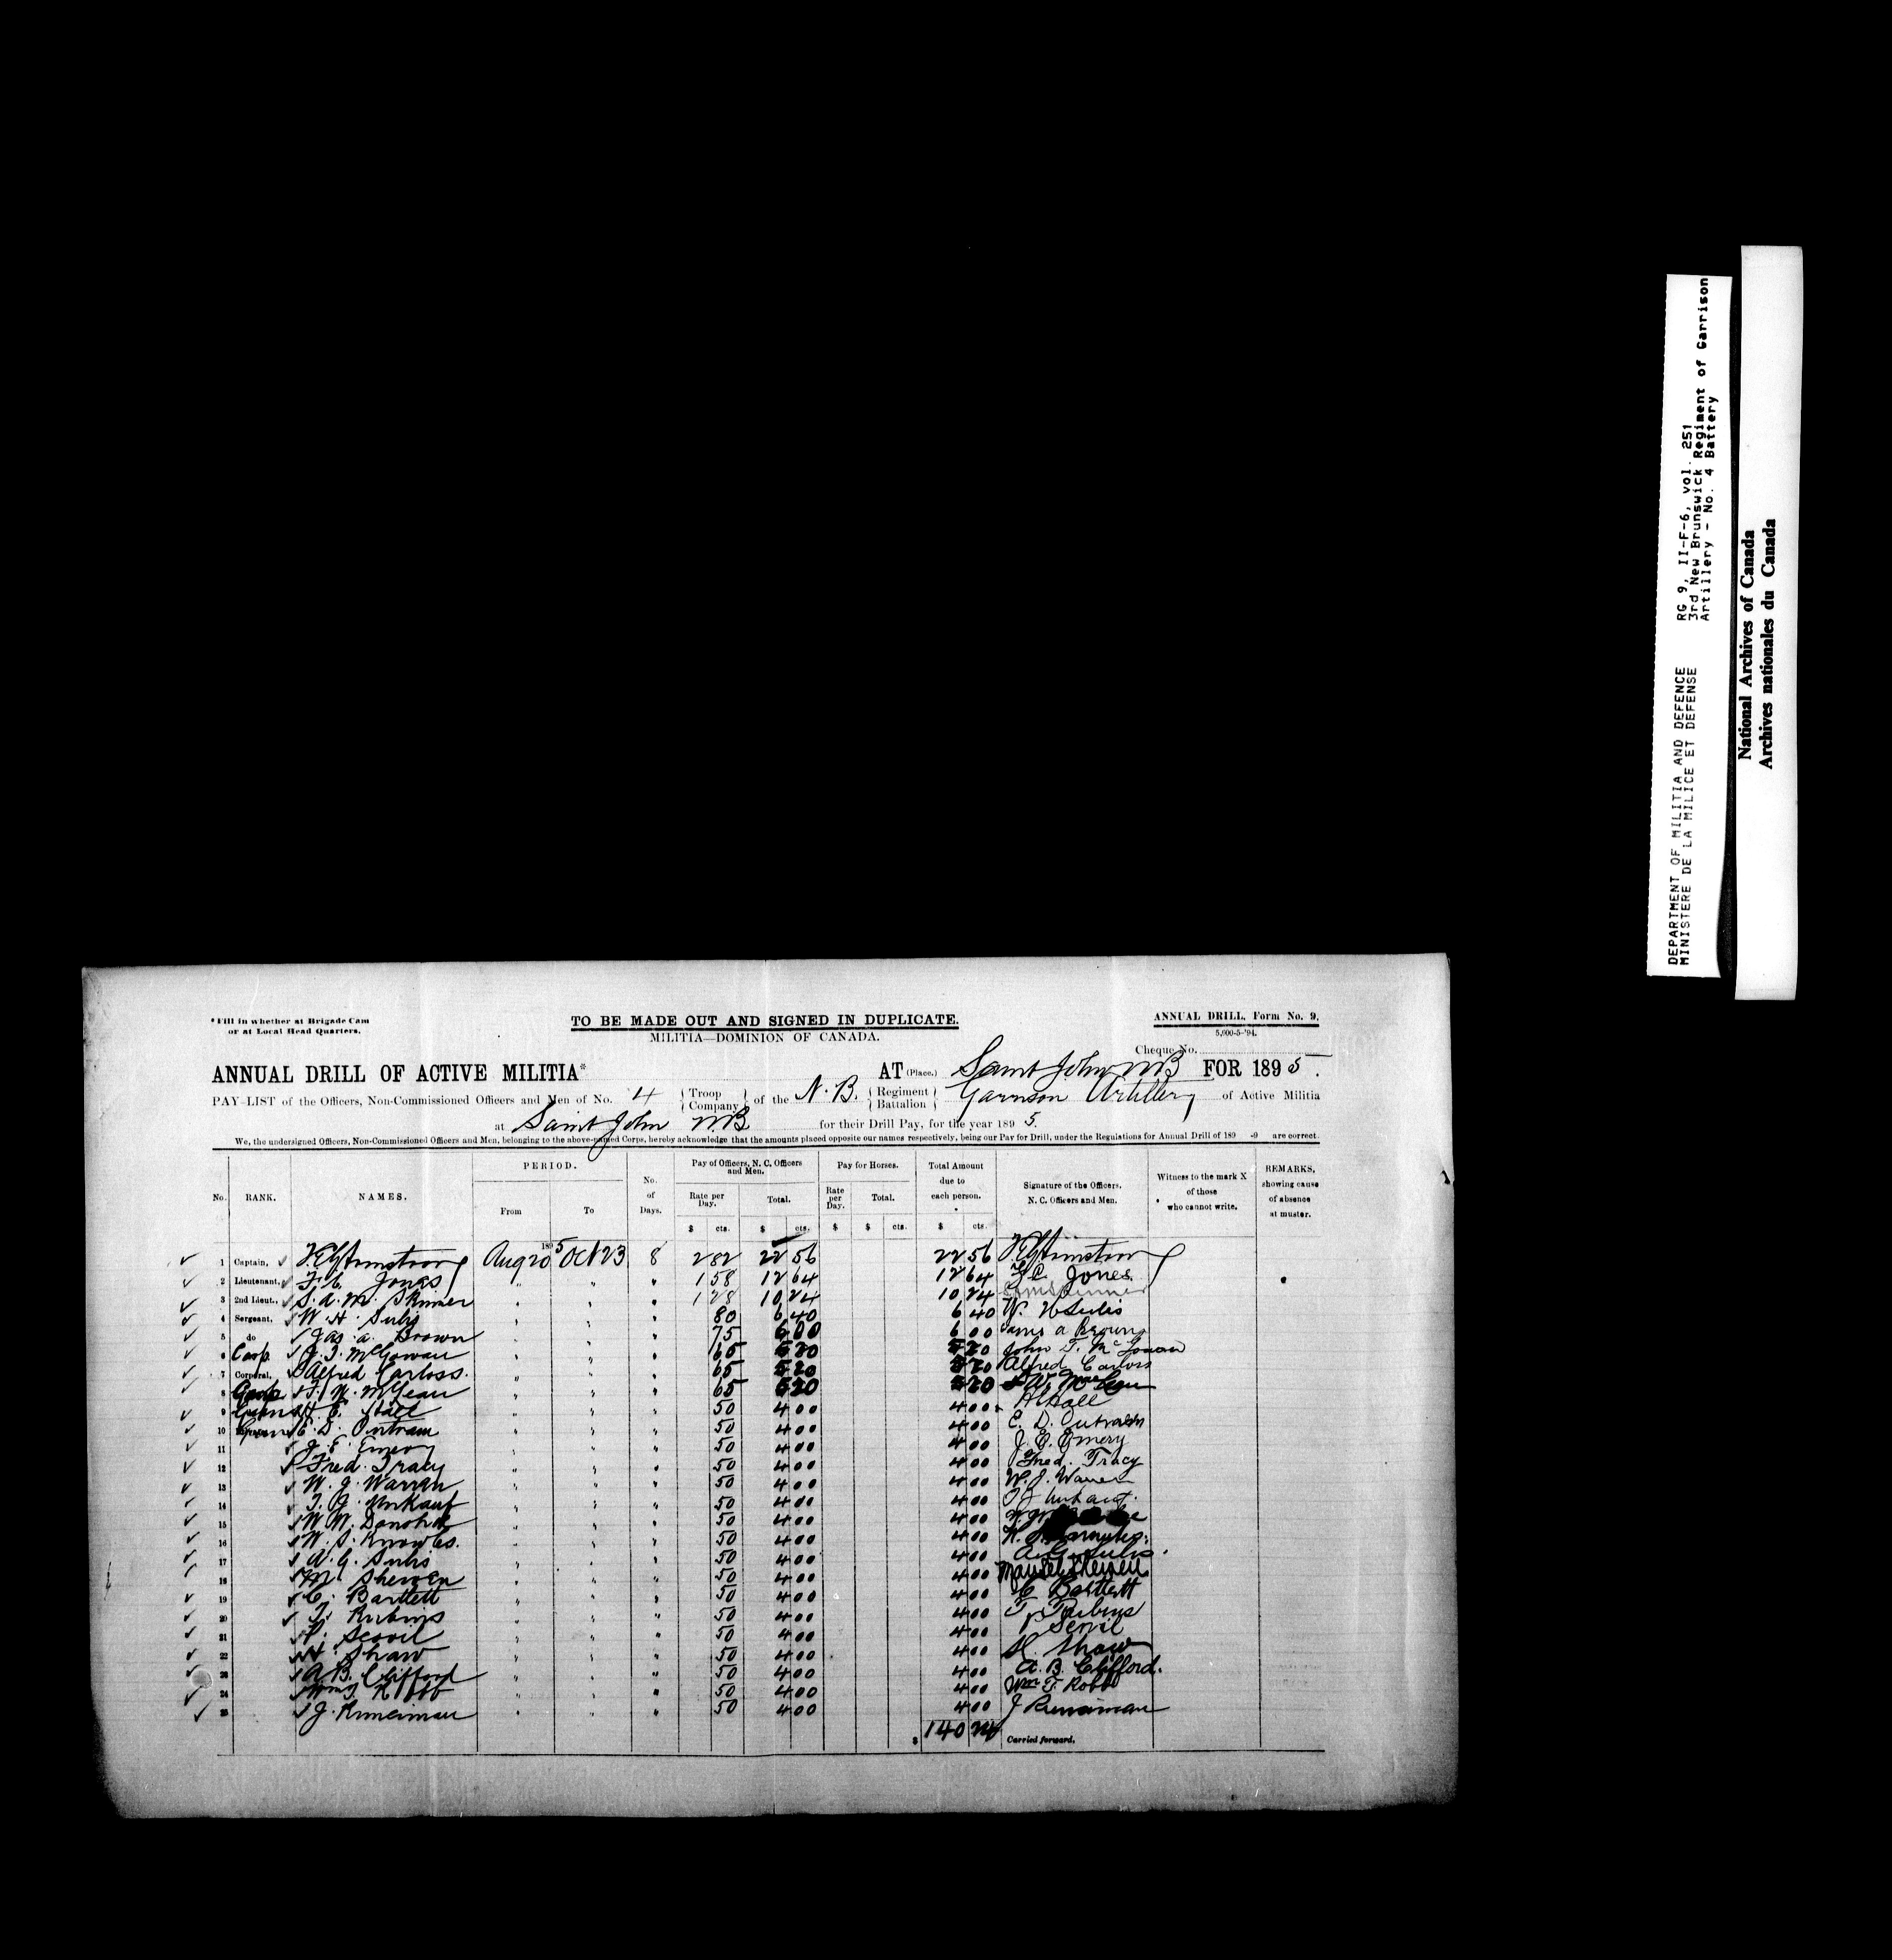 *Fill in whether at Brigade Cam
or at Local Head Quarters.
TO BE MADE OUT AND SIGNED IN DUPLICATE.
MILITIA—DOMINION OF CANADA.
ANNUAL DRILL, Form No. 9.
5,000-5-'94.
Cheque No.
ANNUAL DRILL OF ACTIVE MILITIA* AT (Place.) Saint John NB FOR 1895.
PAY-LIST of the Officers, Non-Commissioned Officers and Men of No. 4 { Troop Company } of the N.B. { Regiment Battalion } Garrison Artillery of Active Militia
at Saint John N.B. for their Drill Pay, for the year 1895.
We, the undersigned Officers, Non-Commissioned Officers and Men, belonging to the above-named Corps, hereby acknowledge that the amounts placed opposite our names respectively, being our Pay for Drill, under the Regulations for Annual Drill of 189 -9 are correct.
No. RANK. NAMES. PERIOD. From To No. of Days. Pay of Officers, N. C. Officers and Men. Rate per Day. $ cts. Total. $ cts. Pay for Horses. Rate per Day. $ Total. $ cts. Total Amount due to each person. $ cts. Signature of the Officers, N. C. Officers and Men. Witness to the mark X of those who cannot write. REMARKS, showing cause of absence at muster.
1 Captain, Armstrong Aug 20 1895 Oct 23 8 2 82 22 56 22 56 Armstrong
2 Lieutenant, F. C. Jones " " " 1 58 12 64 12 64 F C Jones
3 2nd Lieut., S. A. M. Skinner " " " 1 28 10 24 10 24 Skinner
4 Sergeant, W. H. Sulis " " " 80 6 40 6 40 W. H Sulis
5 do Jas. A. Brown " " " 75 6 00 6 00 James A Brown
6 Corp. J. T. McGowan " " " 65 5 20 5 20 John T. McGowan
7 Corporal, Alfred Carloss. " " " 65 5 20 5 20 Alfred Carloss
8 Corp F. W. McLean " " " 65 5 20 5 20 F W McLean
9 Gunn H. E. Hall " " " 50 4 00 4 00 Hall
10 Gunn E. D. Outram " " " 50 4 00 4 00 E. D. Outram
11 J. E. Emery " " " 50 4 00 4 00 J. E. Emery
12 Fred. Tracy " " " 50 4 00 4 00 Fred. Tracy
13 W. J. Warren " " " 50 4 00 4 00 W. J. Warren
14 " " " 50 4 00 4 00
15 W. W. Donohue " " " 50 4 00 4 00
16 W. S. Knowles. " " " 50 4 00 4 00
17 A. G. Sulis " " " 50 4 00 4 00 A. G. Sulis
18 M. Sherren " " " 50 4 00 4 00
19 C. Bartlett " " " 50 4 00 4 00 C Bartlett
20 T. " " " 50 4 00 4 00 T.
21 P. Scovil " " " 50 4 00 4 00 P Scovil
22 H. Shaw " " " 50 4 00 4 00 H Shaw
23 A. B. Clifford " " " 50 4 00 4 00 A. B. Clifford.
24 Wm T. Robb " " " 50 4 00 4 00 Wm T. Robb
25 J. Runciman " " " 50 4 00 4 00 J Runciman
$ 140 24 Carried forward.
DEPARTMENT OF MILITIA AND DEFENCE
MINISTERE DE LA MILICE ET DEFENSE
RG 9, II-F-6, vol. 251
3rd New Brunswick Regiment of Garrison
Artillery - No. 4 Battery
National Archives of Canada
Archives nationales du Canada